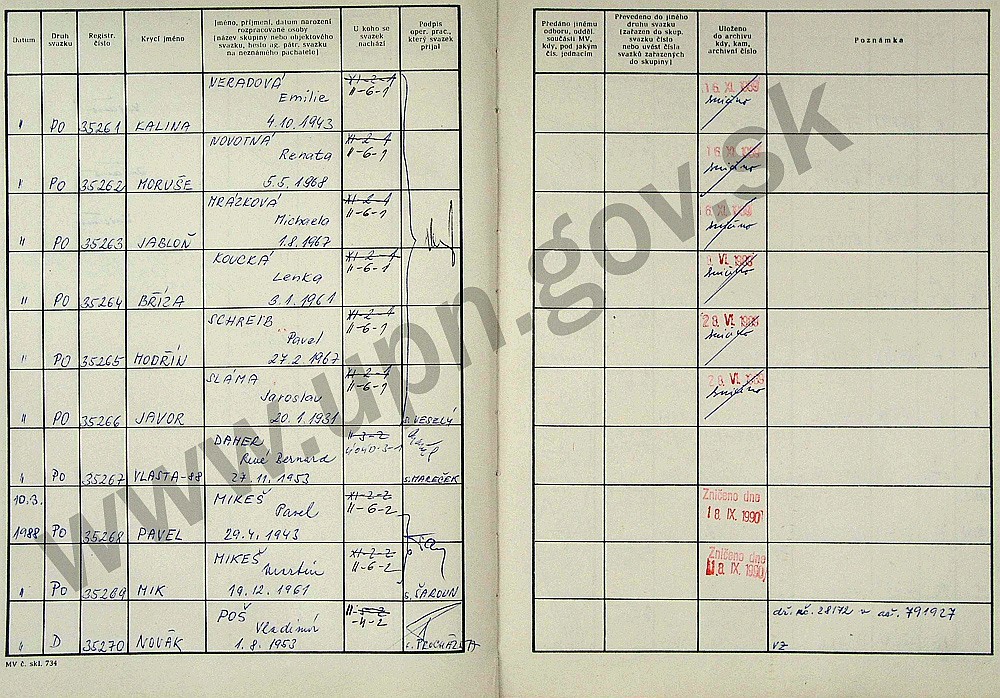 Datum
Druh svazku
Registr. číslo
Krycí jméno
Jméno, příjmení, datum narození
rozpracované osoby
(název skupiny nebo objektového
svazku, heslo ag. pátr. svazku
na neznámého pachatele)
U koho se
svazek
nachází
Podpis
oper. prac.,
který svazek
přijal
Předáno jinému
odboru, odděl.
součásti MV,
kdy, pod jakým
čís. jednacím
Převedeno do jiného
druhu svazku
(zařazen do skup.
svazku číslo
nebo uvést čísla
svazků zařazených
do skupiny)
Uloženo
do archivu
kdy, kam,
archivní číslo
Poznámka
NERADOVÁ XI-2-1
Emilie II-6-1
" PO 35261 KALINA 4.10.1943
16. XI. 1989
zničeno
NOVOTNÁ XI-2-1
Renata II-6-1
" PO 35262 MORUŠE 5.5.1968
16 XI. 1989
zničeno
MRÁZKOVÁ XI-2-1
Michaela II-6-1
" PO 35263 JABLOŇ 1.8.1967
XI. 1989
zničeno
KOUCKÁ XI-2-1
Lenka II-6-1
" PO 35264 BŘÍZA 3.1.1961
VI. 1989
zničeno
SCHREIB XI-2-1
Pavel II-6-1
" PO 35265 MODŘÍN 27.2.1967
28. VI. 1989
zničeno
SLÁMA XI-2-1
Jaroslav II-6-1
" PO 35266 JAVOR 20.1.1931 s. VESELÝ
28. VI. 1989
zničeno
DAHER II-3-2
René Bernard
" PO 35267 VLASTA-88 27.11.1953 s. MAREČEK
10.3. MIKEŠ XI-2-2
Pavel II-6-2
1988 PO 35268 PAVEL 29.4.1943
Zničeno dne
18. IX. 1990
MIKEŠ XI-2-2
Martin II-6-2
" PO 35269 MIK 19.12.1961 s. ŠAROUN
Zničeno dne
18. IX. 1990
POŠ
Vladimír -4-2
" D 35270 NOVÁK 1.8.1953 s. PROCHÁZKA
28172 791927
VZ
MV č. skl. 734
www.upn.gov.sk